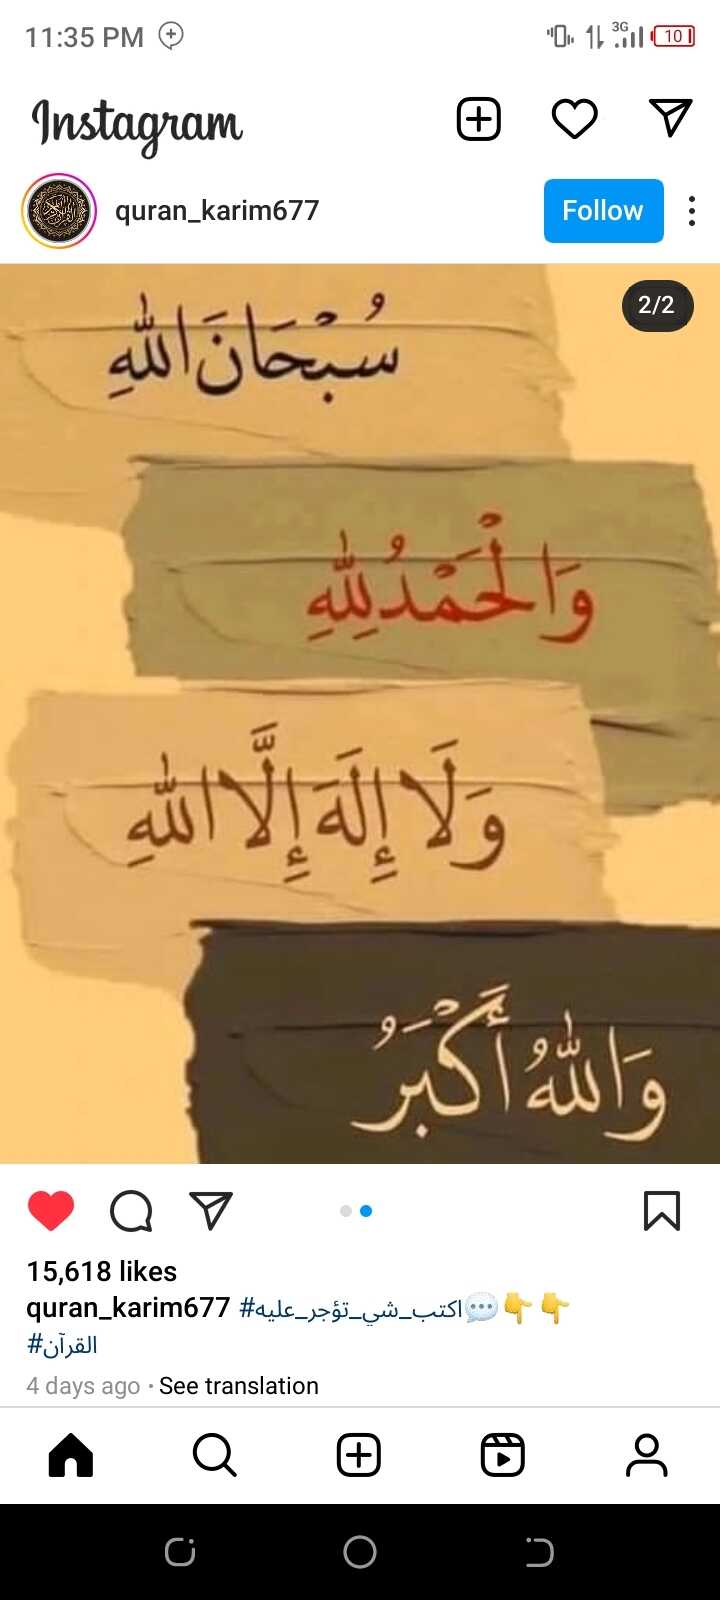 11:35 PM
3G 10
Instagram
quran_karim677
Follow
2/2
سُبْحَانَ اللهِ
وَالْحَمْدُ لِلهِ
وَلَا إِلَهَ إِلَّا اللهِ
وَاللهُ أَكْبَرُ
15,618 likes
quran_karim677 #اكتب_شي_تؤجر_عليه💬👇👇
#القرآن
4 days ago · See translation